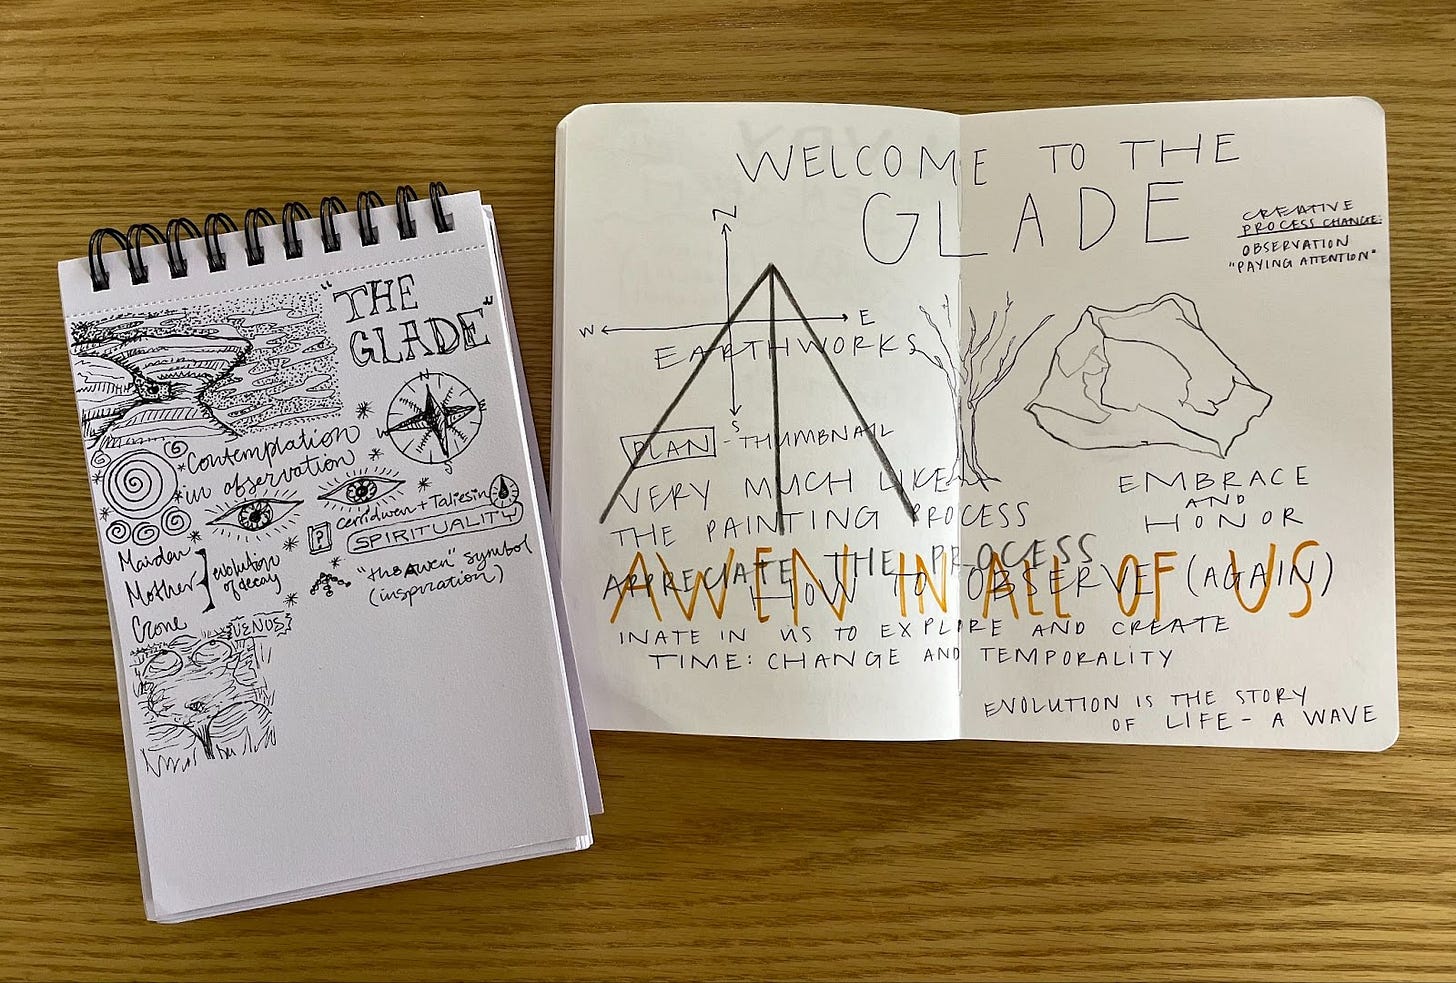 "THE
GLADE"
N
E
W
S
Contemplation
in observation
cerridwen + Taliesin
?
SPIRITUALITY
Maiden
Mother
Crone
evolution
of decay
"the awen" symbol
(inspiration)
VENUS
WELCOME TO THE
GLADE
CREATIVE
PROCESS CHANGE:
OBSERVATION
"PAYING ATTENTION"
N
W
E
S
EARTHWORKS
PLAN - THUMBNAIL
VERY MUCH LIKE
THE PAINTING PROCESS
APPRECIATE THE PROCESS
AWEN IN ALL OF US
HOW TO OBSERVE (AGAIN)
INATE IN US TO EXPLORE AND CREATE
TIME: CHANGE AND TEMPORALITY
EMBRACE
AND
HONOR
EVOLUTION IS THE STORY
OF LIFE - A WAVE